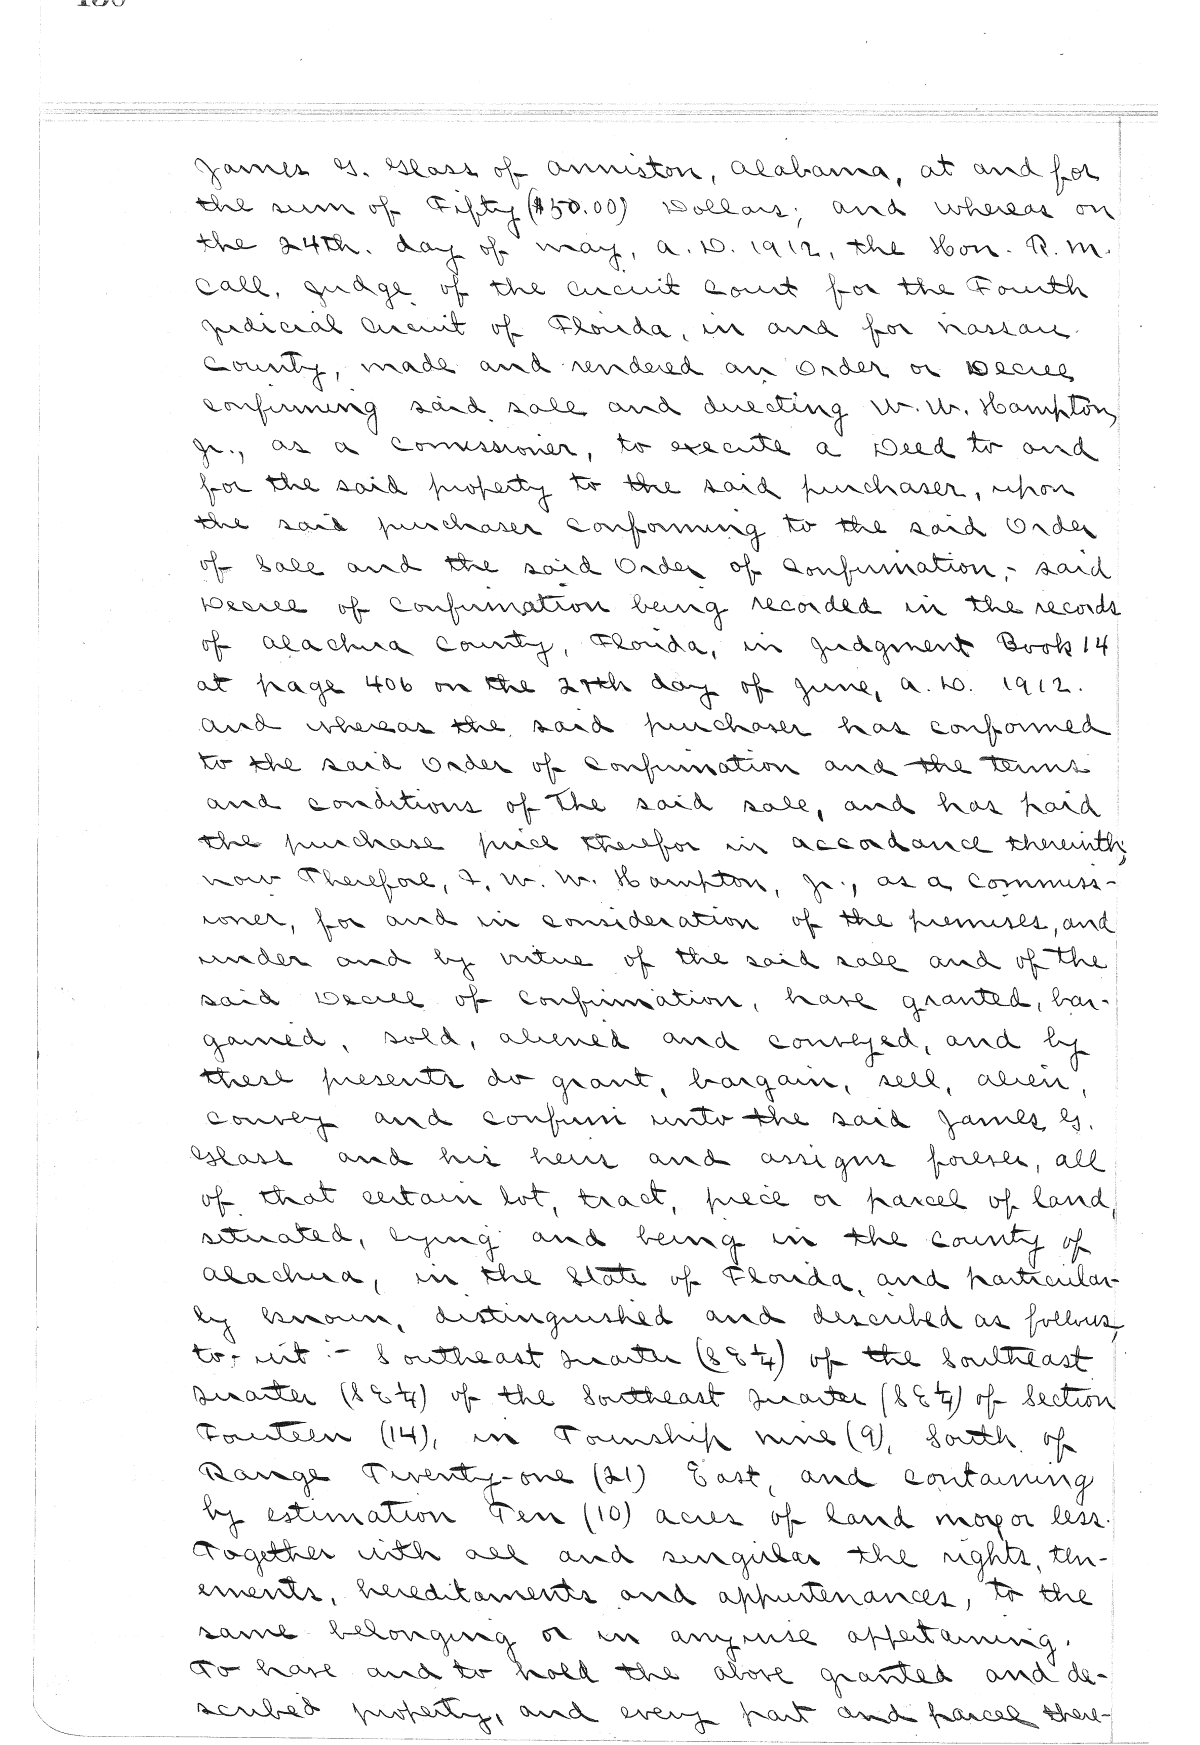 James G. Glass of Anniston, Alabama, at and for
the sum of Fifty ($50.00) Dollars; and whereas on
the 24th. day of May, A. D. 1912, the Hon. R. M.
Call, Judge of the Circuit Court for the Fourth
Judicial Circuit of Florida, in and for Nassau
County, made and rendered an Order or Decree
confirming said sale and directing W. W. Hampton,
Jr., as a Comissioner, to execute a Deed to and
for the said property to the said purchaser, upon
the said purchaser conforming to the said Order
of Sale and the said Order of Confirmation,- said
Decree of Confirmation being recorded in the records
of Alachua County, Florida, in Judgment Book 14
at page 406 on the day of June, A. D. 1912.
And whereas the said purchaser has conformed
to the said Order of Confirmation and the terms
and conditions of The said sale, and has paid
the purchase price therefor in accordance therewith;
Now Therefore, I, W. W. Hampton, Jr., as a Commiss-
ioner, for and in consideration of the premises, and
under and by virtue of the said sale and of the
said Decree of Confirmation, have granted, bar-
gained, sold, aliened and conveyed, and by
these presents do grant, bargain, sell, alien,
convey and confirm unto the said James G.
Glass and his heirs and assigns forever, all
of that certain lot, tract, piece or parcel of land,
situated, lying and being in the County of
Alachua, in the State of Florida, and particular-
ly known, distinguished and described as follows,
to-wit:- Southeast Quarter (SE¼) of the Southeast
Quarter (SE¼) of the Southeast Quarter (SE¼) of Section
Fourteen (14), in Township nine (9), South of
Range Twenty-one (21) East, and containing
by estimation Ten (10) acres of land more or less.
Together with all and singular the rights, ten-
ements, hereditaments and appurtenances, to the
same belonging or in anywise appertaining.
To have and to hold the above granted and de-
scribed property, and every part and parcel there-